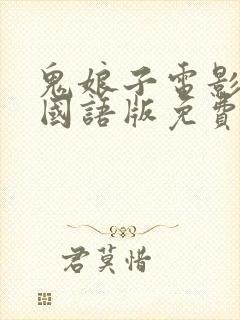 鬼娘子電影
國語版免費
君莫惜